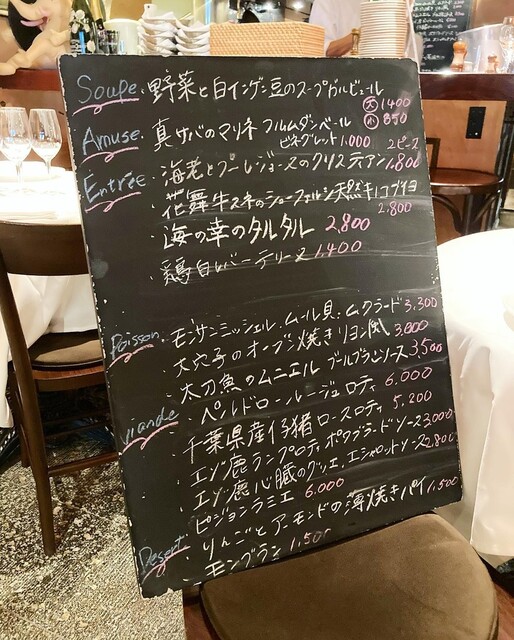 Soupe. 野菜と白インゲン豆のスープ ガルビュール
大 1400
小 850
Amuse. 真サバのマリネ フルムダンベール
ビネグレット 1,000 2ピース
Entrée. 海老とブールジョースのクリスティアン 1,800
・花舞牛スネのショーフェルシ 天然キノコブイヨ
2,800
・海の幸のタルタル 2,800
・鶏白レバーテリーヌ 1,400
Poisson. モンサンミッシェル・ムール貝・ムクラード 3,300
・大穴子のオーブン焼きリヨン風 3,800
・太刀魚のムニエル ブールブランソース 3,500
viande ・ペルドロールージュロティ 6,000
・千葉県産仔猪ロースロティ 5,200
・エゾ鹿ランプロティ ポワブラードソース 3,000
・エゾ鹿心臓のグリエ、エシャロットソース 2,800
・ピジョンラミエ 6,000
Desert ・りんごとアーモンドの薄焼きパイ 1,500
・モンブラン 1,500